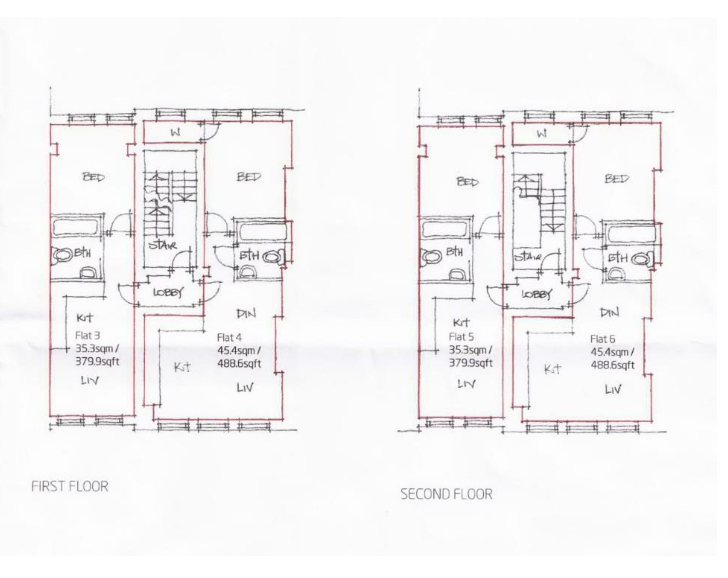 W
BED
BED
BTH
STAIR
BTH
LOBBY
KIT
DIN
Flat 3
35.3sqm /
379.9sqft
Flat 4
45.4sqm /
488.6sqft
KIT
LIV
LIV
FIRST FLOOR
W
BED
BED
BTH
STAIR
BTH
LOBBY
KIT
DIN
Flat 5
35.3sqm /
379.9sqft
Flat 6
45.4sqm /
488.6sqft
KIT
LIV
LIV
SECOND FLOOR